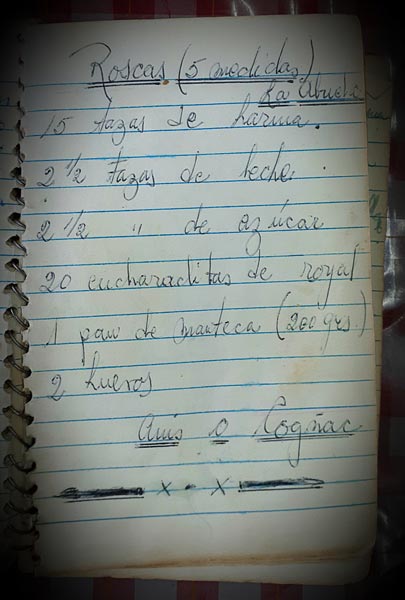 Roscas (5 medidas)
La Abuela
15 tazas de harina.
2 1/2 tazas de leche.
2 1/2 " de azúcar
20 cucharaditas de royal
1 pan de manteca (200 grs.)
2 huevos
Anis o Cogñac
x - x